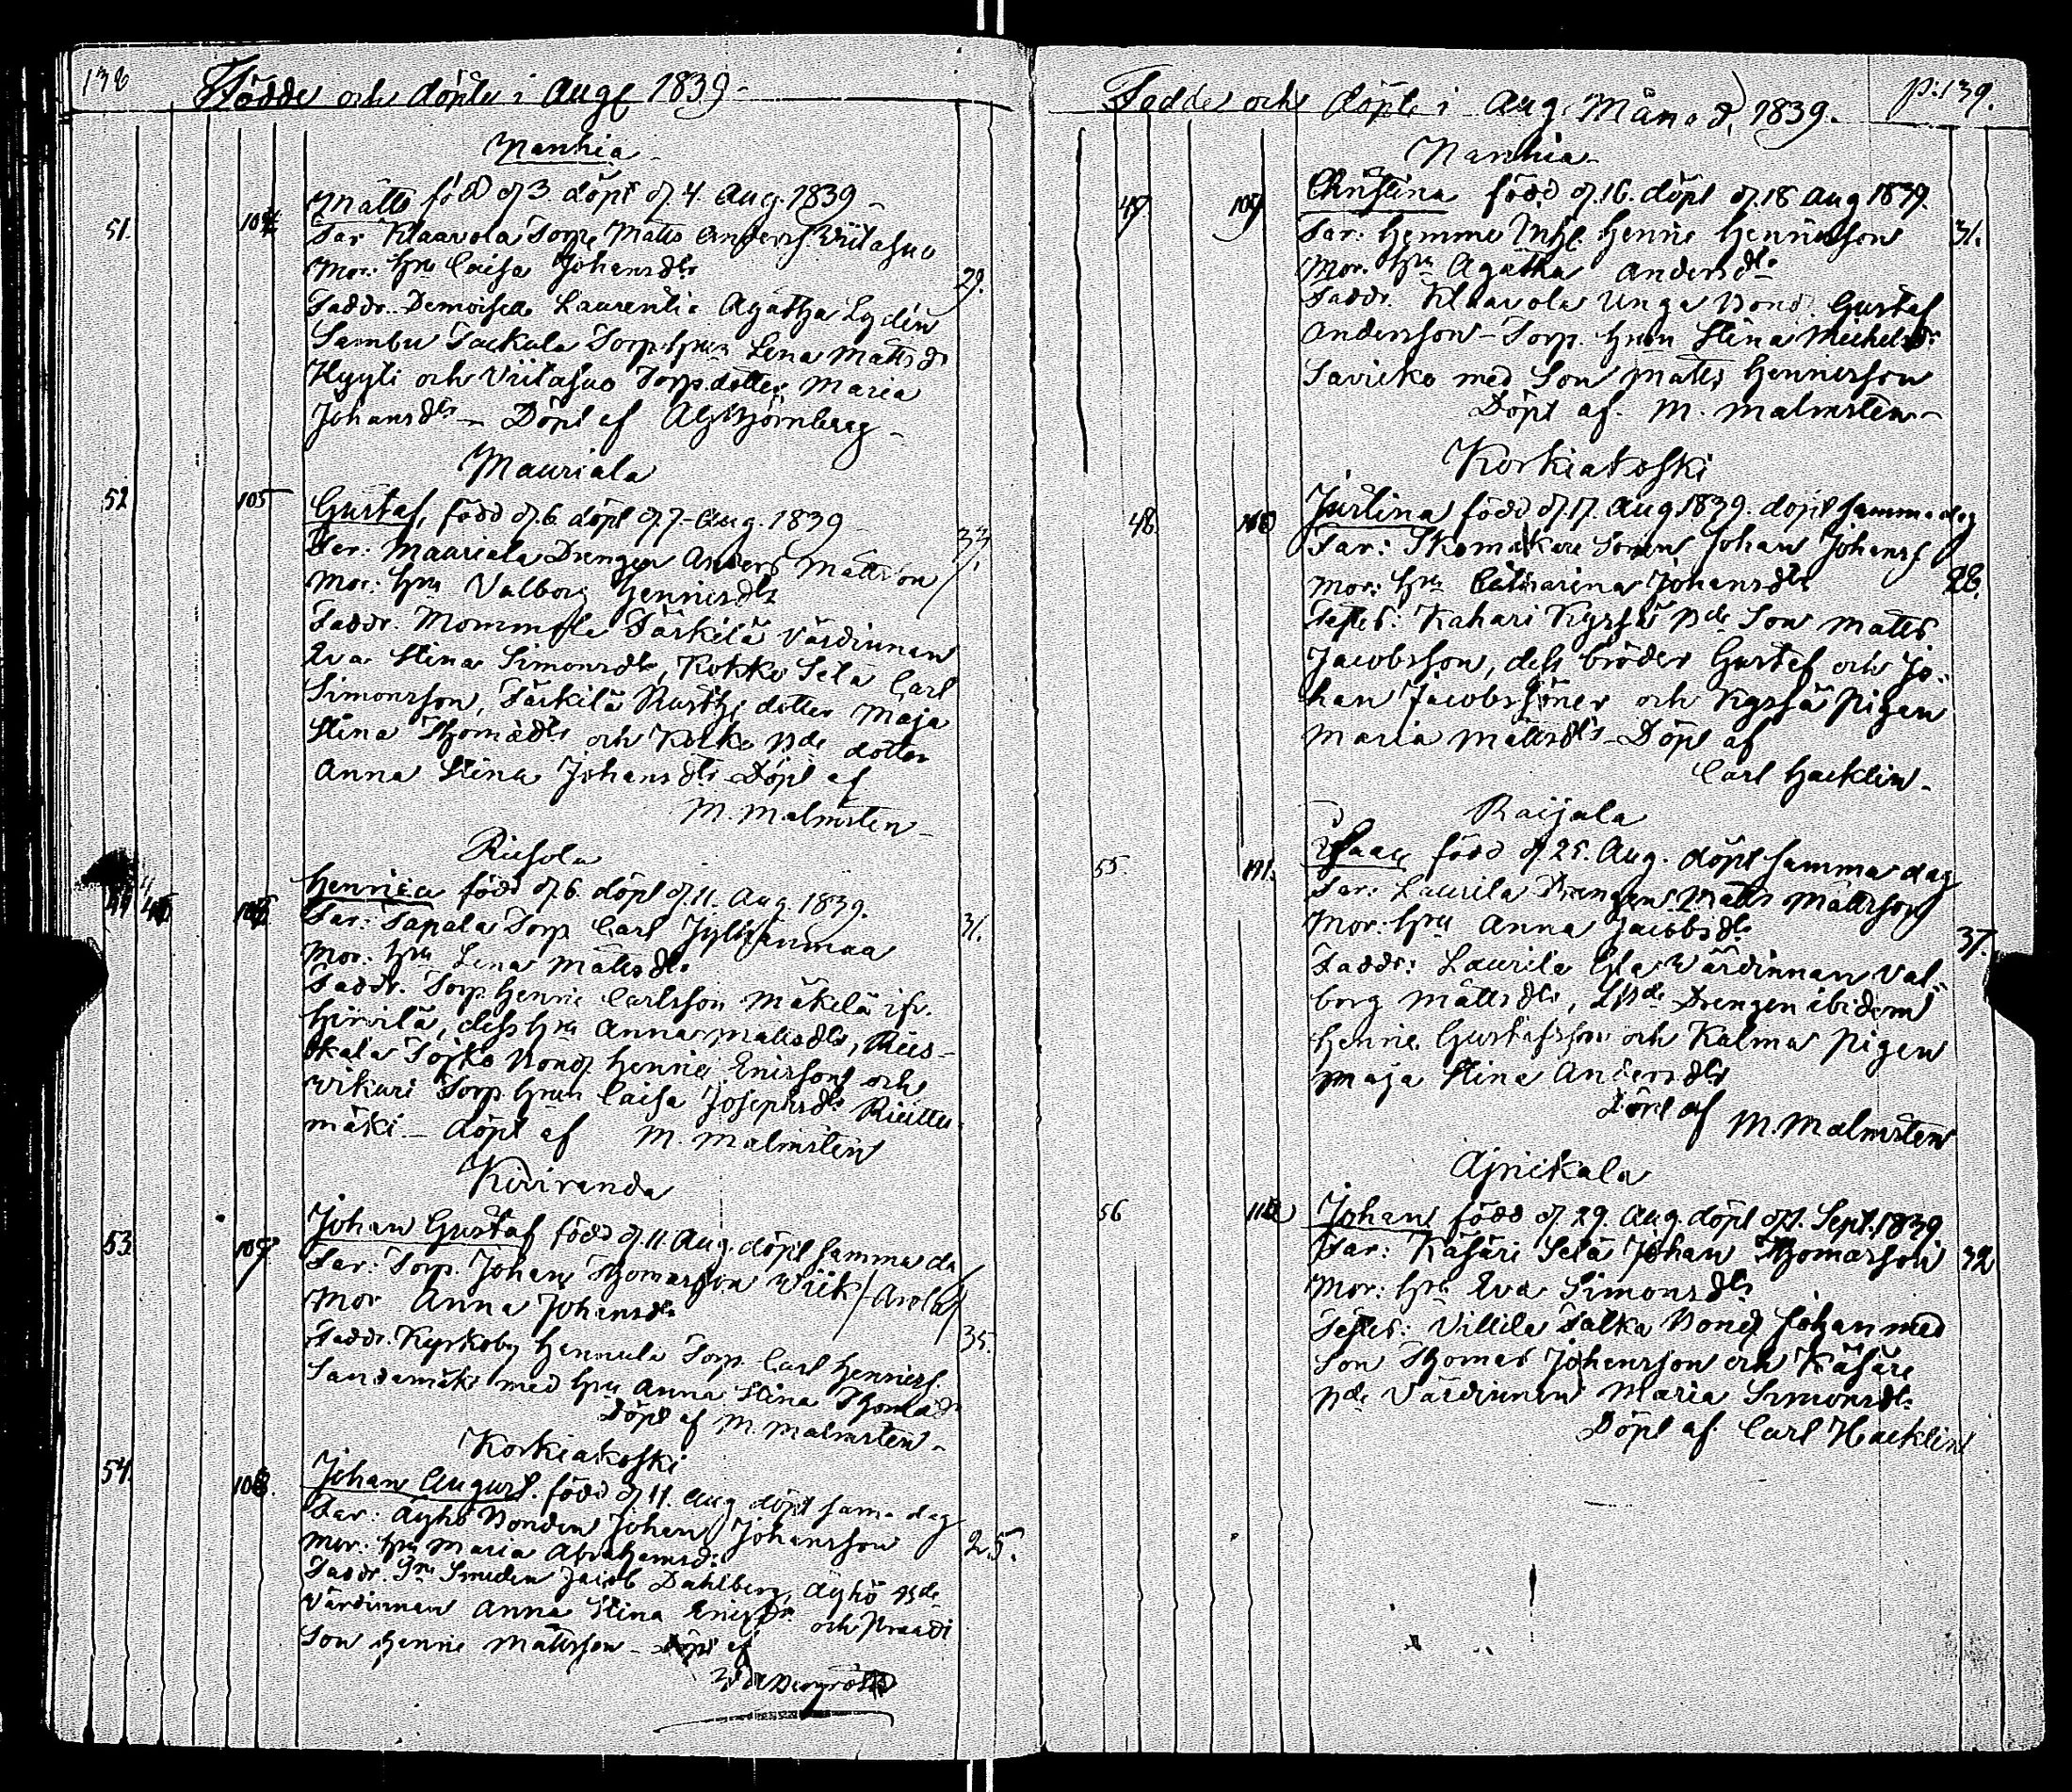 138 Födde och döpte i Aug 1839
Nanhia
51. 104 Matts född d 3. döpt d 4. Aug. 1839
Far Klaavola Torp. Matts Anderss. Viitasuo
Mor: hu Caisa Johansdr 29.
Faddr. Demoisell Laurentia Agatha Lydén
Sambu Torp hun Lena Mattsdr
Hyyti och Viitasuo Torp. dotter Maria
Johansdr Döpt af Björnberg
Mauriala
52 105 Gustaf, född d 6. döpt d 7. Aug. 1839
Far: Maariala Drengen Anders Mattsson 33.
Mor: hu Valborg Henricsdr
Faddr. Mommola Färkilä Värdinnan
Eva Stina Simonsdr, Kokko Sela Carl
Simonsson, Färkilä Rusth. dotter Maja
Stina Thomædr och Kokko Bde dotter
Anna Stina Johansdr Döpt af
M. Malmsten
Risola
106 Henrica född d 6. döpt d 11. Aug. 1839.
Far: Sapala Torp. Carl Jylhänmaa 31.
Mor: hu Lena Mattsdr
Faddr. Torp Henric Carlsson Mäkelä ifr.
Hirvilä, dess hu Anna Mattsdr, Riis-
kala Töykö Bond Henric Ericsson och
Vikuri Torp. hun Caisa Josephsdr Riuttu-
mäki döpt af M. Malmsten
Kiviranda
53. 107 Johan Gustaf född d 11. Aug. döpt samma da
Far: Torp. Johan Thomasson Wiik / Arola
Mor Anna Johansdr 35.
Faddr. Kyrkoby Hannula Torp. Carl Henricss.
Sandamäki med hu Anna Stina Thomædr
Döpt af M. Malmsten
Korkiakoski
54. 108. Johan August. född d 11. Aug. döpt sam. dag
Far: Äyhö Bonden Johan Johansson 25.
Mor: hu Maria Abrahamsd.
Faddr. Smeden Jacob Dahlberg, Äyhö Bde
Värdinnan Anna Stina Ericsdr och Praadi
Son Henric Mattsson döpt af
Bergroth
Födde och döpte i Aug. Månad, 1839. p. 139.
Nanhia
47 109 Christina född d. 16. döpt d. 18 Aug 1839.
Far: Hemmo Inh. Henric Henricsson 31.
Mor. hu Agatha Andersdr
Faddr. Klaavola Unga Bond. Gustaf
Andersson Torp. hun Stina Michelsdr
Savicko med Son Matts Henricsson
Döpt af. M. Malmsten
Korkiakoski
48. 110 Justina född d. 17. Aug 1839. döpt samma dag
Far: Skomakare Sonen Johan Johanss.
Mor: hu Catharina Johansdr 28.
Testes: Kahari Kyrsä Bde Son Matts
Jacobsson, dess bröder Gustaf och Jo-
han Jacobssöner och Kyrsä Pigan
Maria Mattsdr Döpt af
Carl Hacklin
Raijala
55. 111. Isaac född d 25. Aug. döpt samma dag
Far: Laurila Drengen Matts Mattsson
Mor: hu Anna Jacobsdr 37.
Faddr: Laurila Värdinnan Val-
borg Mattsdr, Bde Drengen ibidem
Henric Gustafsson och Kalma Pigan
Maja Stina Andersdr
Döpt af M. Malmsten
Äjnikala
56 112 Johan född d 29. Aug. döpt d 1. Sept. 1839
Far: Käsäri Selä Johan Thomasson 32
Mor: hu Eva Simonsdr
Testes: Villila Talka Bond Johan med
Son Thomas Johansson och Käsäre
Bde Värdinnan Maria Simonsdr
Döpt af Carl Hacklin